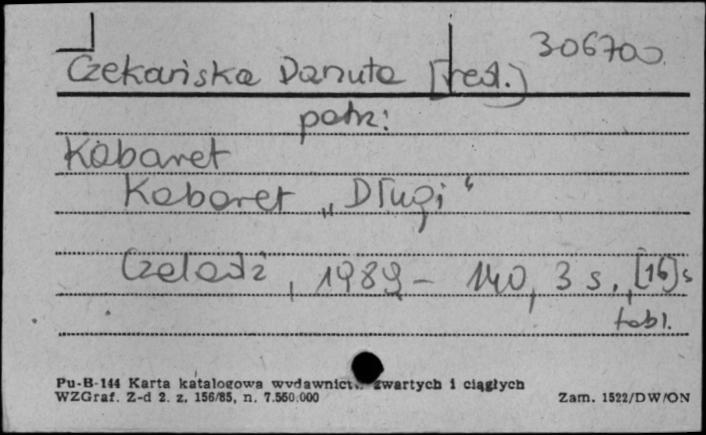 306700
Czekańska Danuta [red.]
patrz:
Kabaret
Kabaret „Długi“
Czeladź, 1989 - 140, 3 s., [16] s
tabl.
Pu-B-144 Karta katalogowa wydawnictw zwartych i ciągłych
WZGraf. Z-d 2. z. 156/85, n. 7.550.000
Zam. 1522/DW/ON